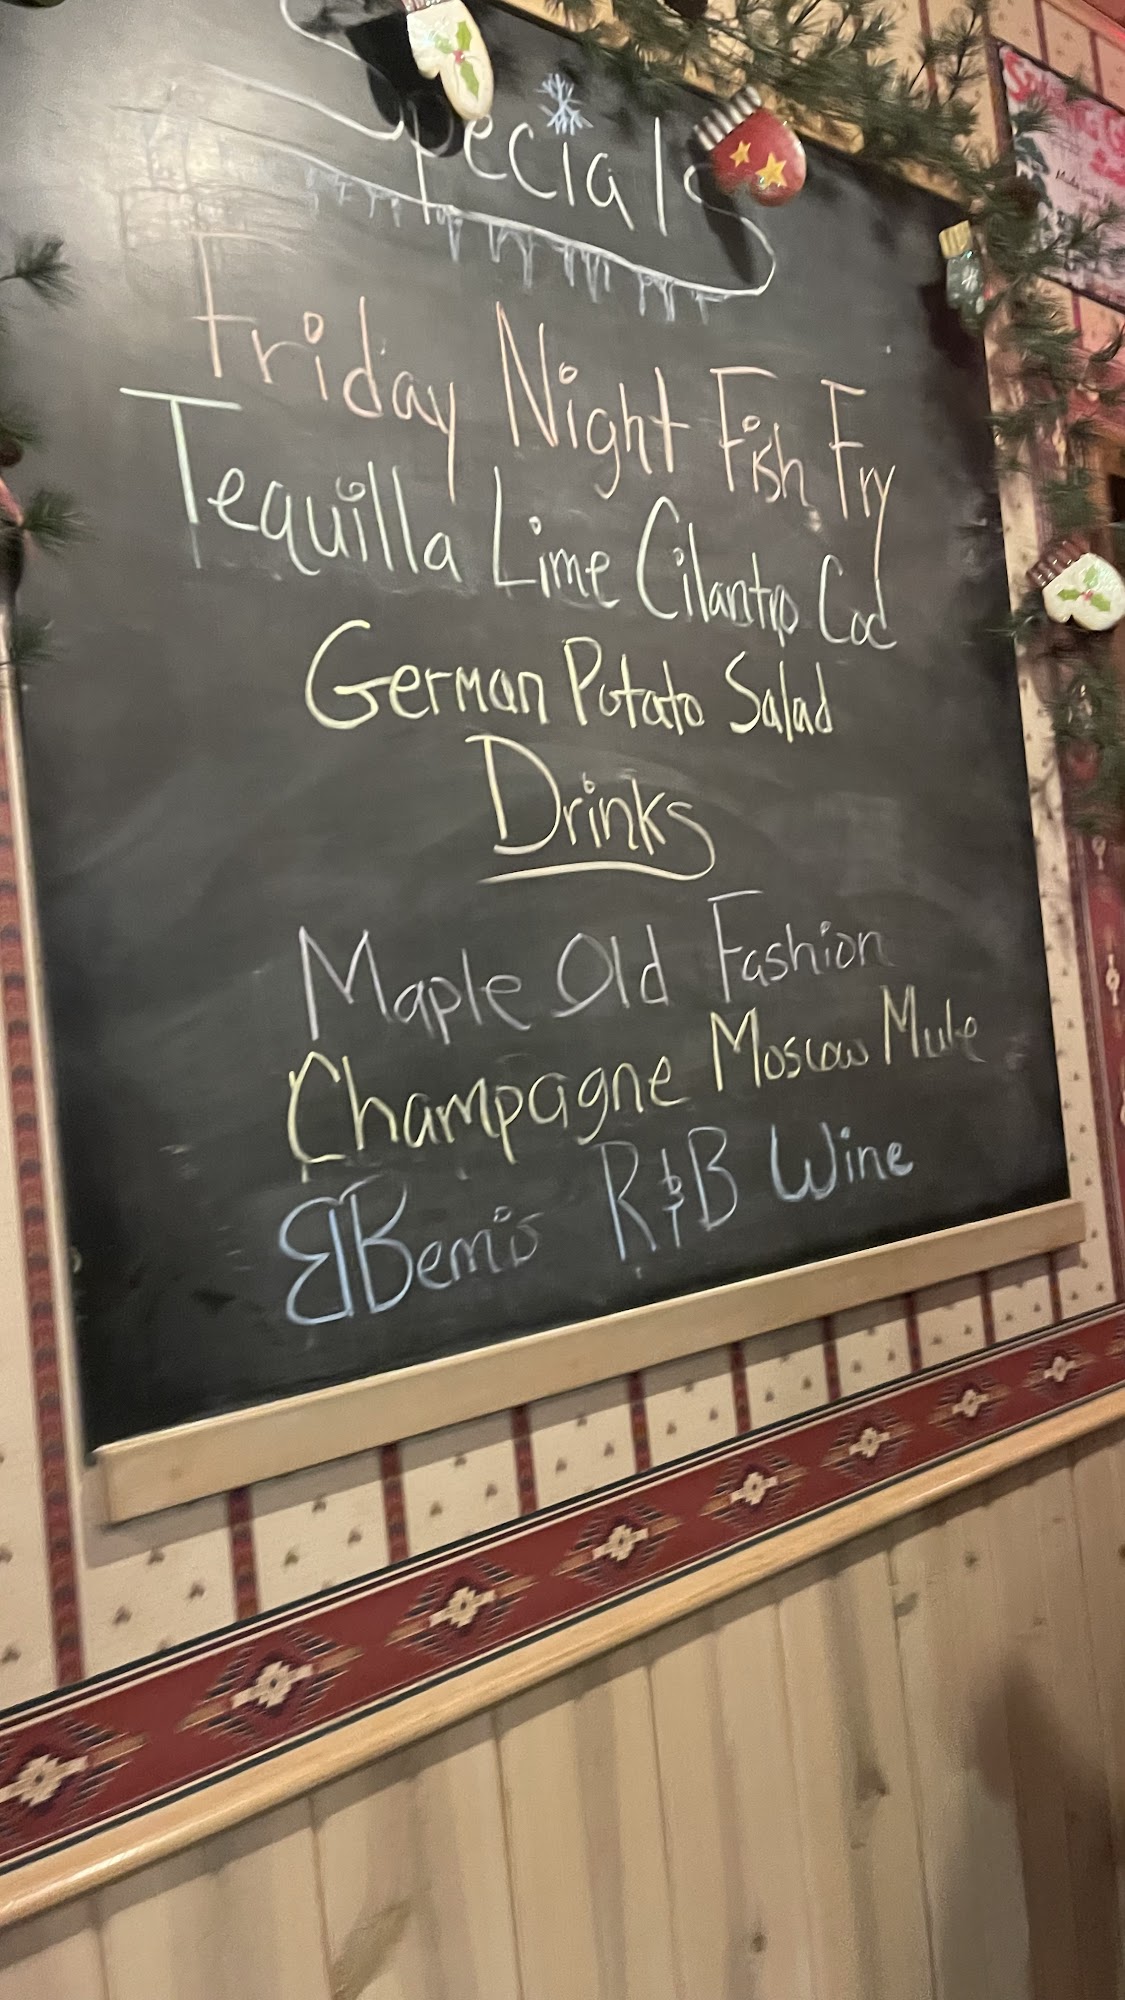 Specials
Friday Night Fish Fry
Tequilla Lime Cilantro Cod
German Potato Salad
Drinks
Maple Old Fashion
Champagne Moscow Mule
R&B Wine